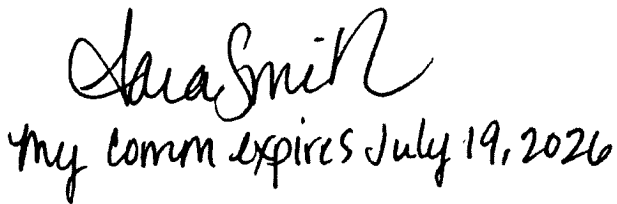 Sara Smith
My comm expires July 19, 2026